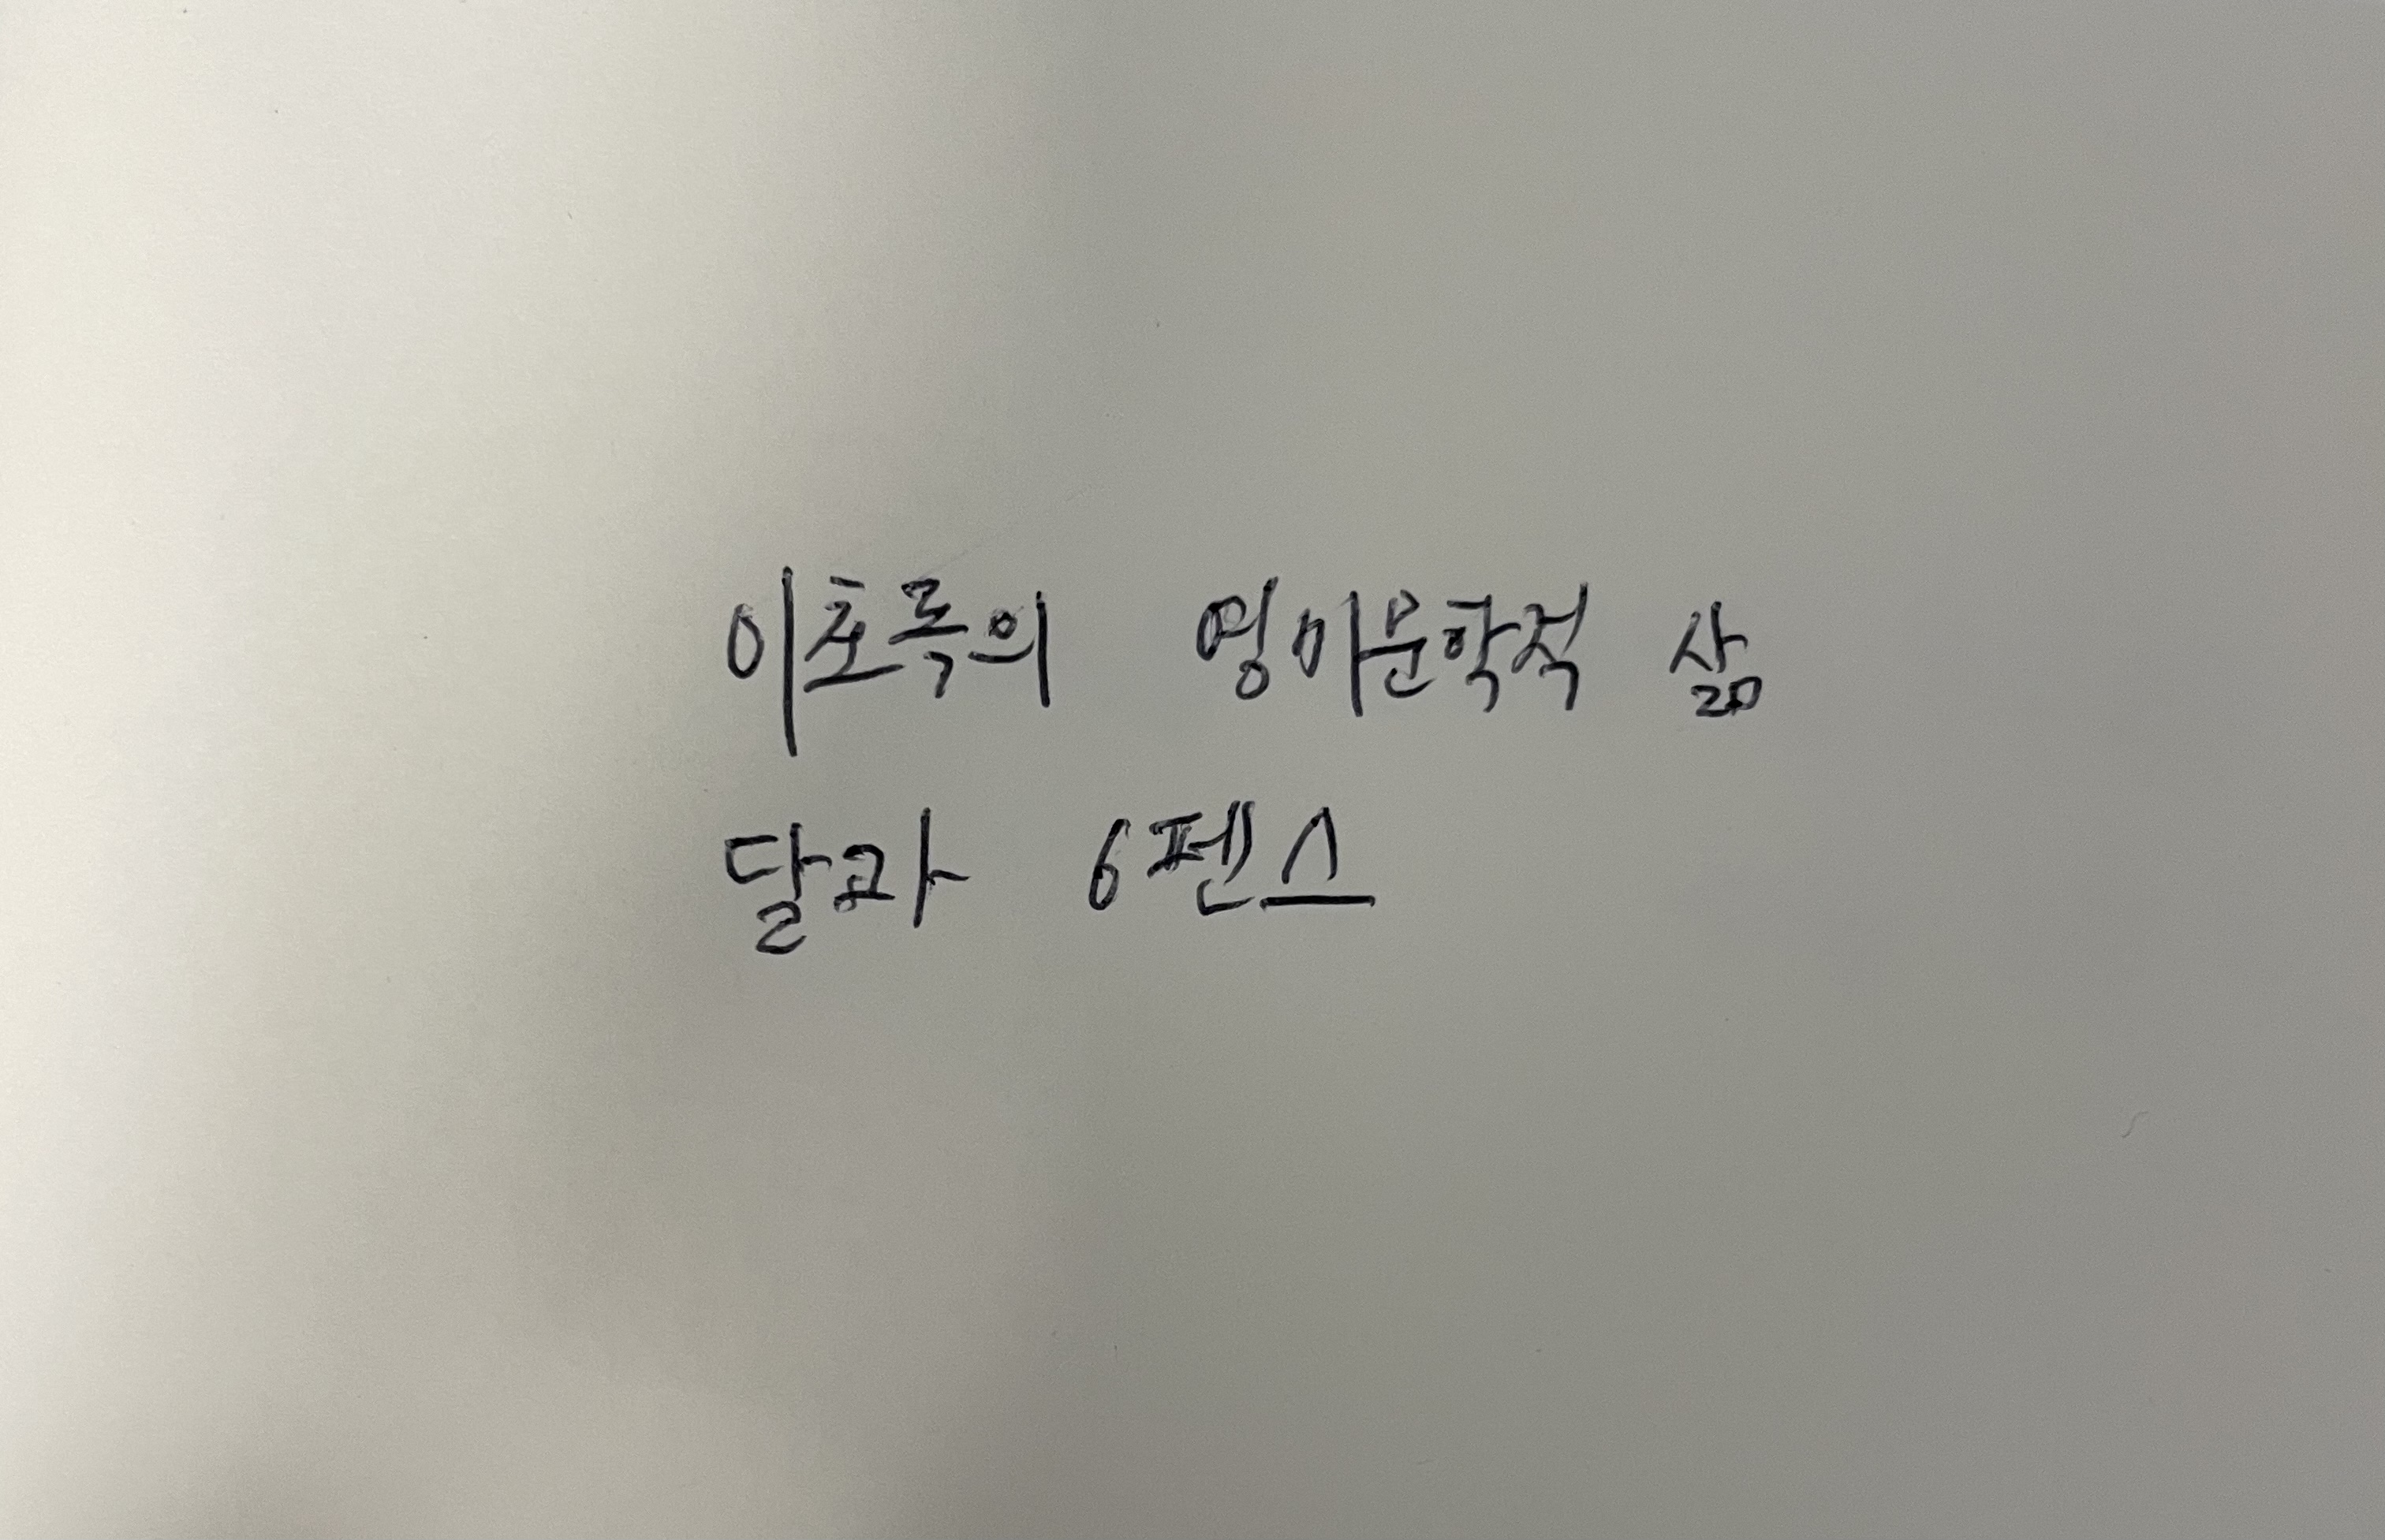 이초록의 영미문학적 삶
달과 6펜스